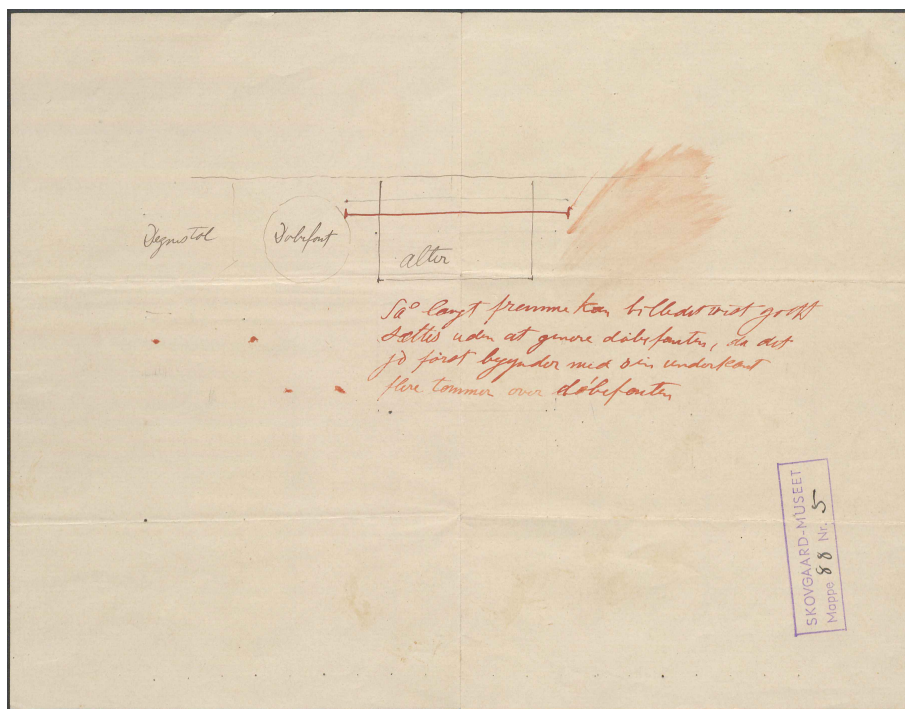 Degnestol
Døbefont
alter
Så langt fremme kan billedet vist godt
sættes uden at genere døbefonten, da det
jo først begynder med sin underkant
flere tommer over døbefonten
SKOVGAARD-MUSEET
Mappe 88 Nr. 5